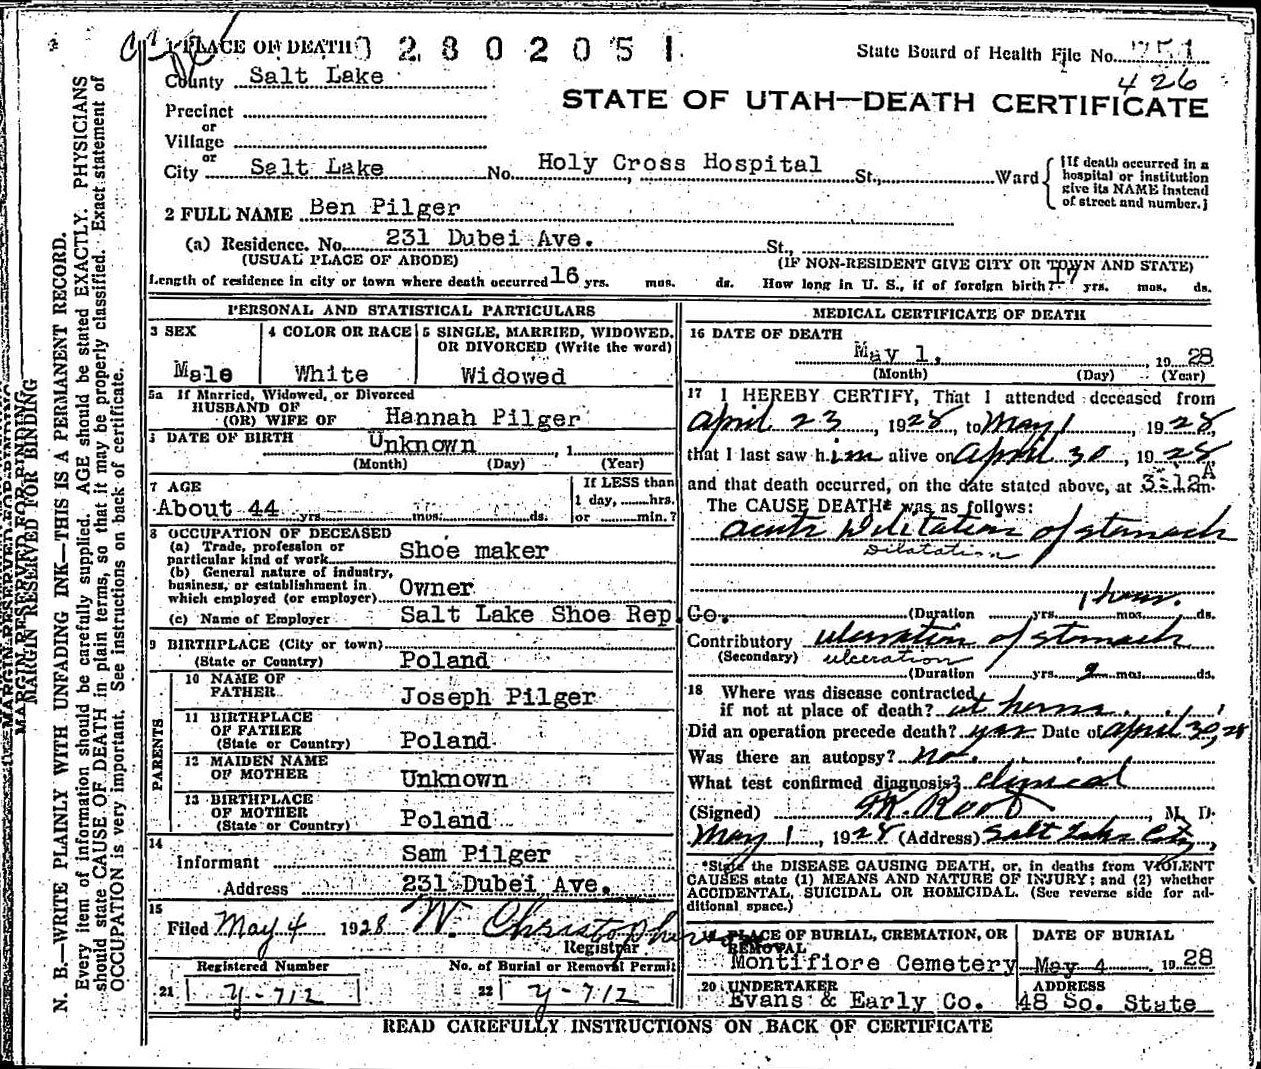 1 PLACE OF DEATH 0 2 8 0 2 0 5 1
State Board of Health File No. 751
426
County Salt Lake
STATE OF UTAH—DEATH CERTIFICATE
Precinct
or
Village
or
City Salt Lake No. Holy Cross Hospital St., Ward
[If death occurred in a
hospital or institution
give its NAME instead
of street and number.]
2 FULL NAME Ben Pilger
(a) Residence. No. 231 Dubei Ave. St.,
(USUAL PLACE OF ABODE) (IF NON-RESIDENT GIVE CITY OR TOWN AND STATE)
Length of residence in city or town where death occurred 16 yrs. mos. ds. How long in U. S., if of foreign birth? 17 yrs. mos. ds.
PERSONAL AND STATISTICAL PARTICULARS
3 SEX
Male
4 COLOR OR RACE
White
5 SINGLE, MARRIED, WIDOWED,
OR DIVORCED (Write the word)
Widowed
5a If Married, Widowed, or Divorced
HUSBAND OF
(OR) WIFE OF Hannah Pilger
6 DATE OF BIRTH Unknown , 1
(Month) (Day) (Year)
7 AGE
About 44 yrs. mos. ds.
If LESS than
1 day, hrs.
or min.?
8 OCCUPATION OF DECEASED
(a) Trade, profession or
particular kind of work Shoe maker
(b) General nature of industry,
business, or establishment in
which employed (or employer) Owner
(c) Name of Employer Salt Lake Shoe Rep. Co.
9 BIRTHPLACE (City or town)
(State or Country) Poland
PARENTS
10 NAME OF
FATHER Joseph Pilger
11 BIRTHPLACE
OF FATHER
(State or Country) Poland
12 MAIDEN NAME
OF MOTHER Unknown
13 BIRTHPLACE
OF MOTHER
(State or Country) Poland
14
Informant Sam Pilger
Address 231 Dubei Ave.
15
Filed May 4 1928 W. Christopherson
Registrar
Registered Number No. of Burial or Removal Permit
21 y-712 22 y-712
MEDICAL CERTIFICATE OF DEATH
16 DATE OF DEATH
May 1, 1928
(Month) (Day) (Year)
17 I HEREBY CERTIFY, That I attended deceased from
April 23, 1928, to May 1, 1928,
that I last saw him alive on April 30, 1928
and that death occurred, on the date stated above, at 3:12 A m.
The CAUSE DEATH* was as follows:
acute Dilitation of stomach
Dilatation
1 hour.
(Duration yrs. mos. ds.
Contributory ulceration of stomach
(Secondary) ulceration
(Duration yrs. 2 mos. ds.
18 Where was disease contracted
if not at place of death? at home
Did an operation precede death? yes Date of April 30, 28
Was there an autopsy? no.
What test confirmed diagnosis? Clinical
(Signed) , M. D.
May 1, 1928 (Address) Salt Lake City,
*State the DISEASE CAUSING DEATH, or, in deaths from VIOLENT
CAUSES state (1) MEANS AND NATURE OF INJURY; and (2) whether
ACCIDENTAL, SUICIDAL OR HOMICIDAL. (See reverse side for ad-
ditional space.)
PLACE OF BURIAL, CREMATION, OR
REMOVAL
Montifiore Cemetery
DATE OF BURIAL
May 4 1928
20 UNDERTAKER
Evans & Early Co.
ADDRESS
48 So. State
READ CAREFULLY INSTRUCTIONS ON BACK OF CERTIFICATE
MARGIN RESERVED FOR BINDING
N. B.—WRITE PLAINLY WITH UNFADING INK—THIS IS A PERMANENT RECORD.
Every item of information should be carefully supplied. AGE should be stated EXACTLY. PHYSICIANS
should state CAUSE OF DEATH in plain terms, so that it may be properly classified. Exact statement of
OCCUPATION is very important. See instructions on back of certificate.